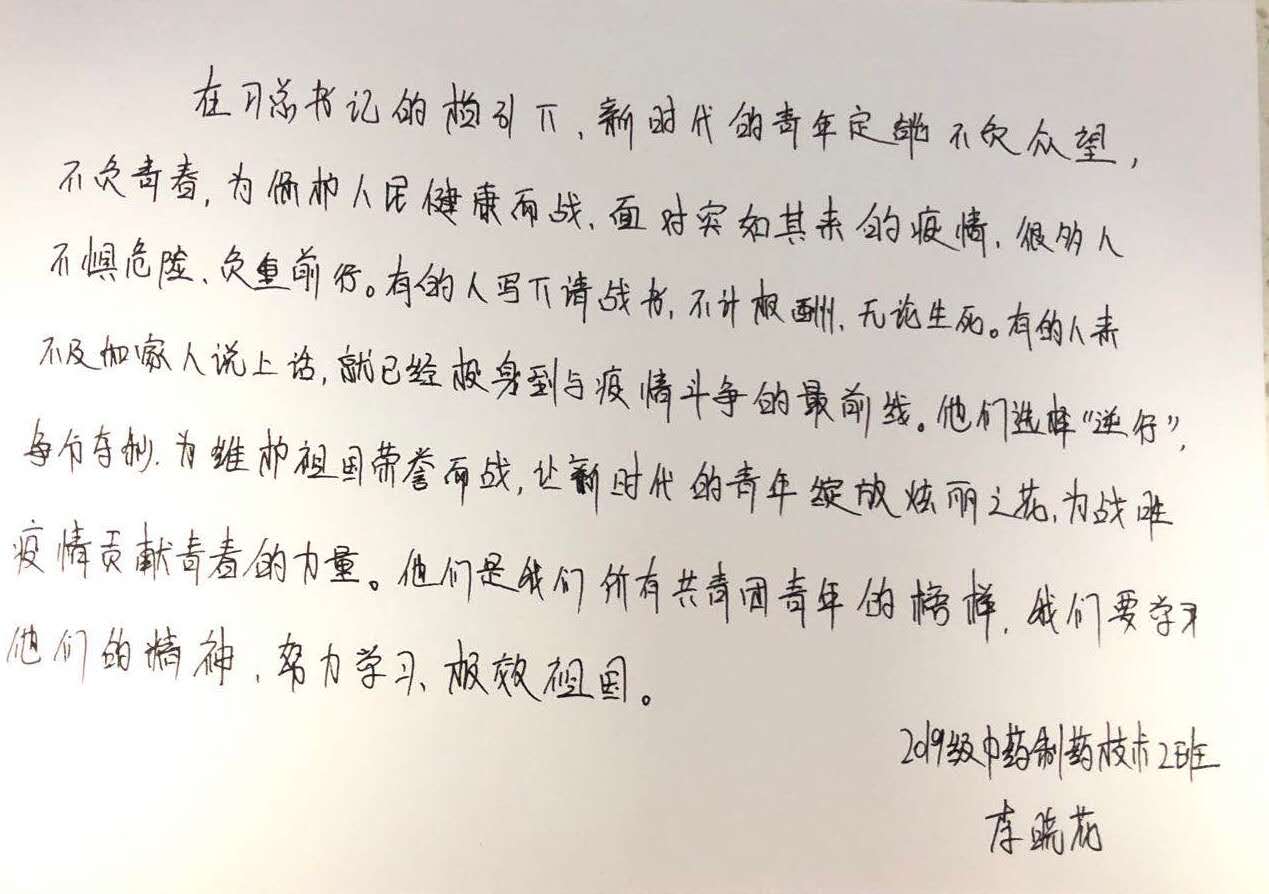 在习总书记的指引下，新时代的青年定能不负众望，
不负青春，为保护人民健康而战，面对突如其来的疫情，很多人
不惧危险、负重前行。有的人写下请战书，不计报酬，无论生死。有的人来
不及和家人说上话，就已经投身到与疫情斗争的最前线。他们选择“逆行”，
争分夺秒，为维护祖国荣誉而战，让新时代的青年绽放炫丽之花，为战胜
疫情贡献青春的力量。他们是我们所有共青团青年的榜样，我们要学习
他们的精神，努力学习、报效祖国。
2019级中药制药技术2班
李晓花